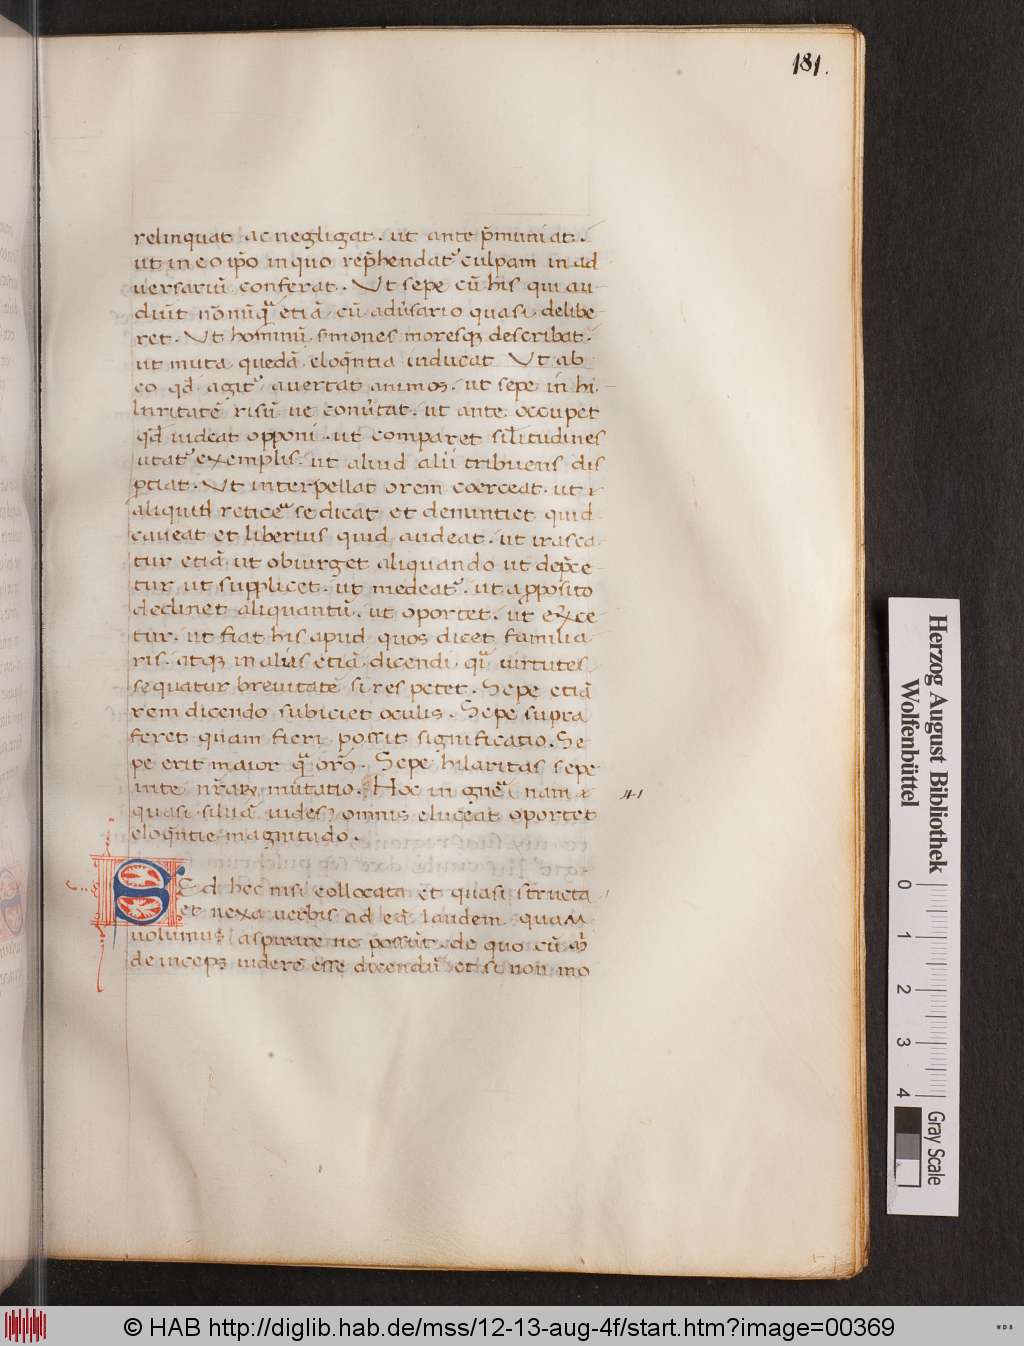 181.
relinquat ac negligat. ut ante p̄muniat.
ut in eo ip̄o in quo rep̄hendat᷒ culpam in ad
uersariū conferat. Vt sepe cū his qui au
diūt nōnūq̄ etiā cū adu̓sario quasi delibe
ret. Vt hominū s̓mones moresqꝫ describat.
ut muta quedā eloq̄ntia inducat Vt ab
eo qd̄ agit᷒ auertat animos. ut sepe in hi
laritatē risū ue conu̓tat. ut ante occupet
qd̄ uideat opponi. ut comparet sil̄itudines
utat᷒ exemplis. ut aliud alii tribuens dis
ꝑtiat. Vt interpellatorem coerceat. ut
aliquid reticeᷓ se dicat et denuntiet quid
caueat et liberius quid audeat. ut irasca
tur etiā ut obiurget aliquando ut dep̄ce
tur ut supplicet. ut medeat᷒. ut apposito
declinet aliquantū. ut oportet. ut exce
tur. ut fiat his apud quos dicet familia
ris. atqꝫ in alias etiā dicendi qᷓ uirtutes
sequatur breuitatē si res petet. Sepe etiā
rem dicendo subiciet oculis. Sepe supra
feret quam fieri possit significatio. Se
pe erit maior qᷓ or̄o. Sepe hilaritas sepe
uite nr̄arꝫ mutatio. Hoc in gn̄eᷓ nam
quasi siluā uides omnis eluceat oportet
eloq̄ntie magnitudo.
41
SEd hec nisi collocata et quasi structa
et nexa uerbis ad eā laudem quam
uolumus aspirare nō possūt. de quo cū m̓
deinceps uidere esse dicendū et si non mo
Herzog August Bibliothek
Wolfenbüttel
0 1 2 3 4
Gray Scale
© HAB http://diglib.hab.de/mss/12-13-aug-4f/start.htm?image=00369